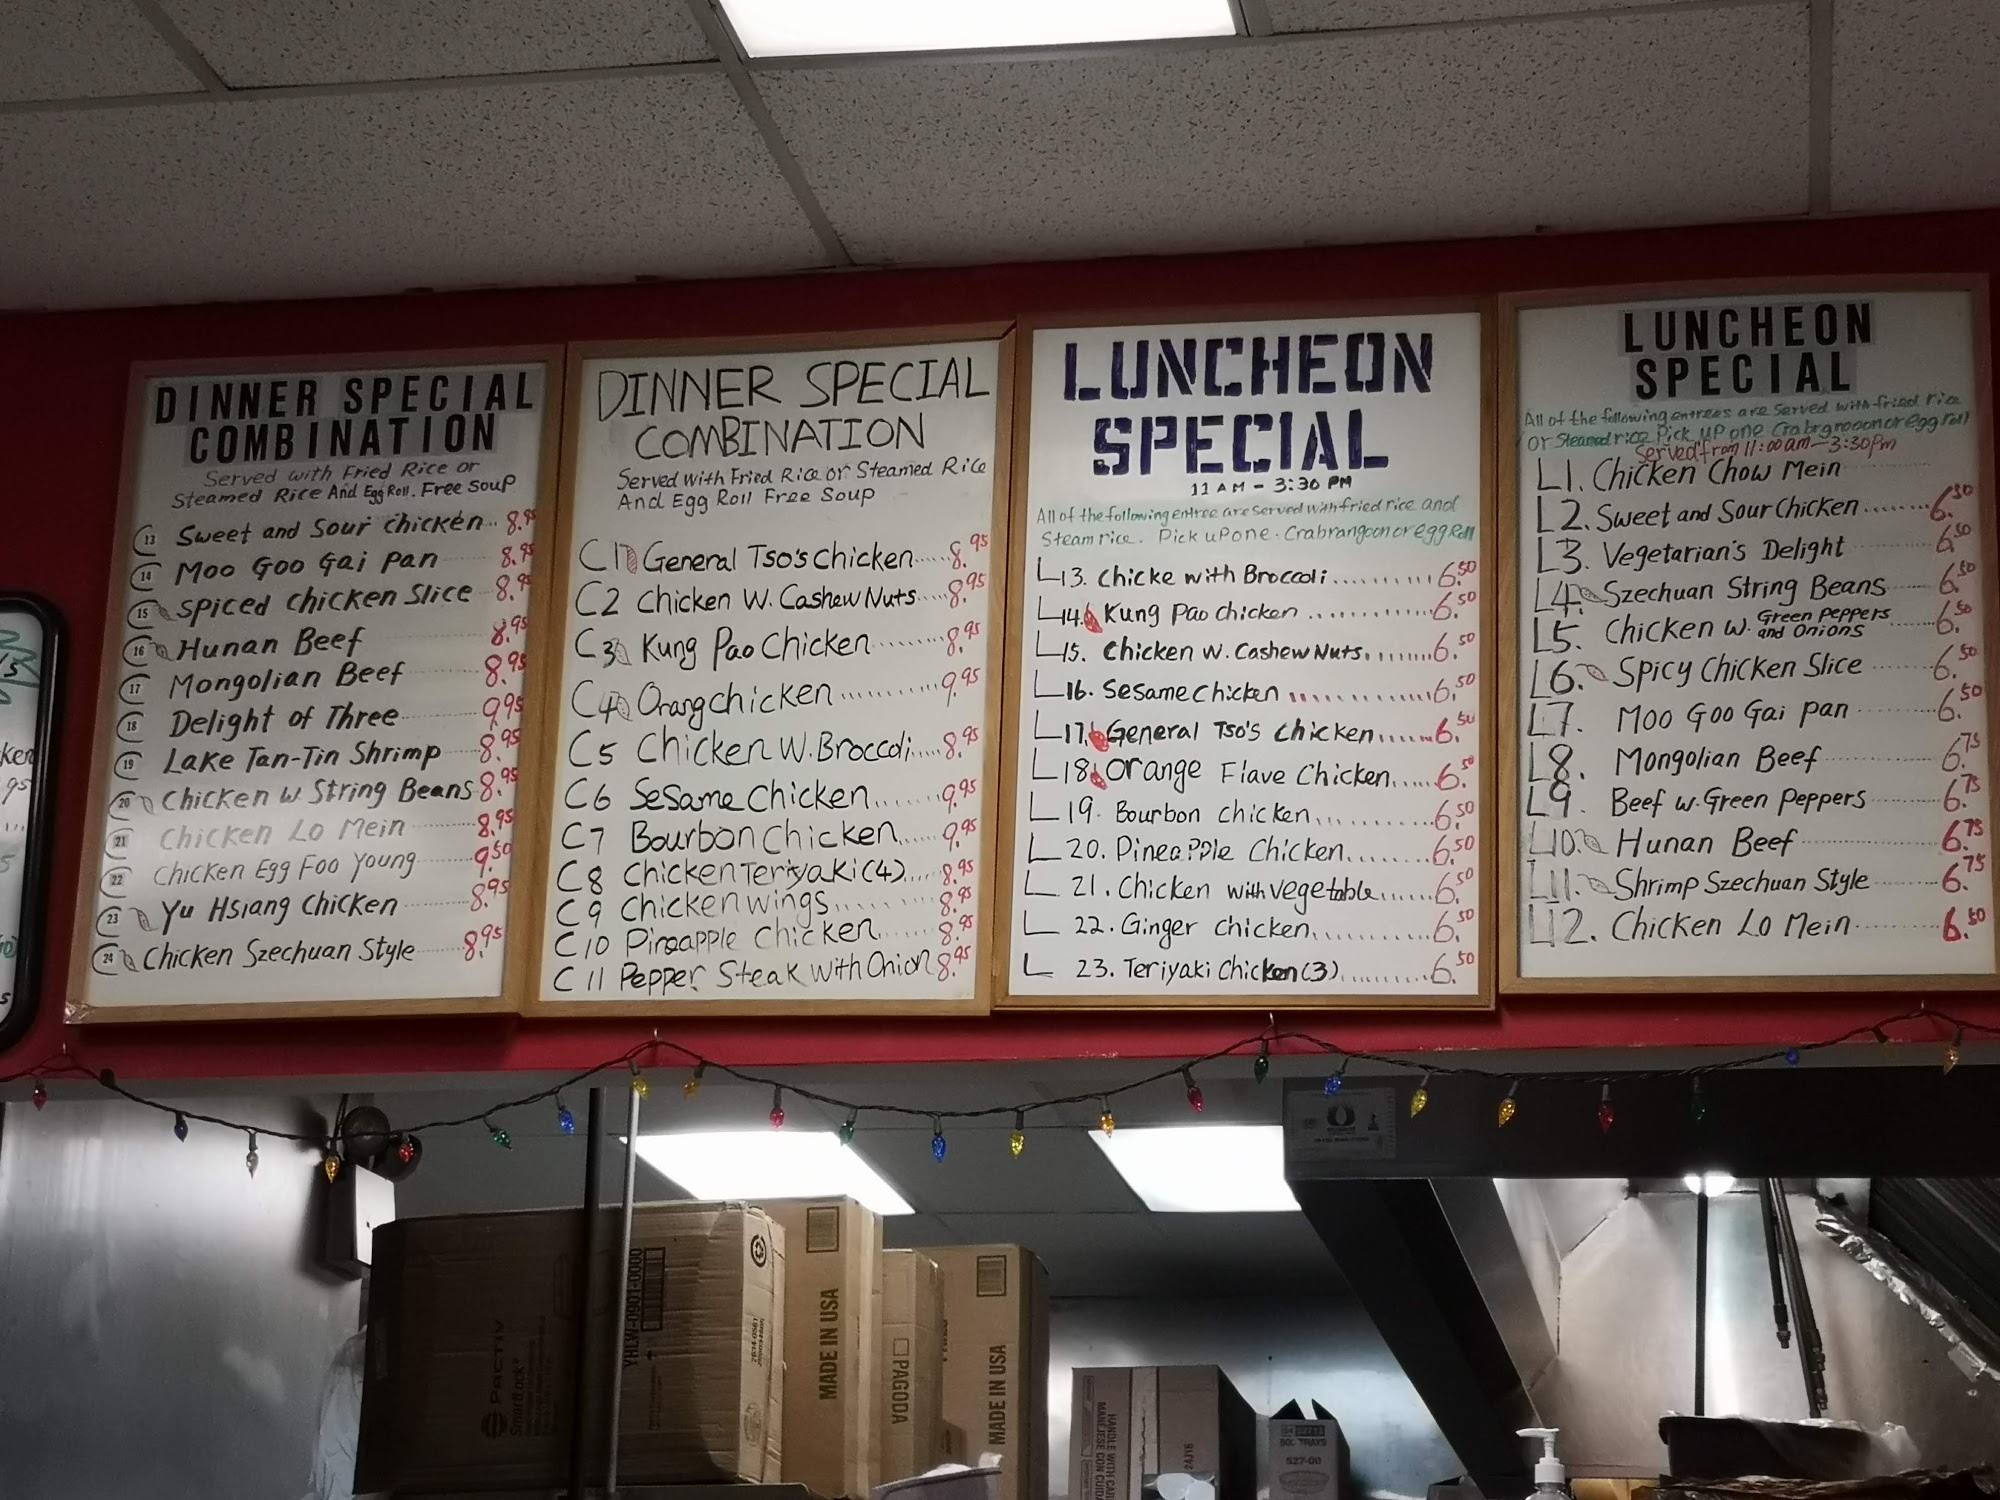 DINNER SPECIAL
COMBINATION
Served with Fried Rice or
Steamed Rice And Egg Roll. Free Soup
13 Sweet and Sour chicken.. 8.95
14 Moo Goo Gai Pan 8.95
15 Spiced Chicken Slice 8.95
16 Hunan Beef 8.95
17 Mongolian Beef 8.95
18 Delight of Three 9.95
19 Lake Tan-Tin Shrimp 8.95
20 Chicken W. String Beans 8.95
21 Chicken Lo Mein 8.95
22 Chicken Egg Foo Young 9.50
23 Yu Hsiang Chicken 8.95
24 Chicken Szechuan Style 8.95
DINNER SPECIAL
COMBINATION
Served with Fried Rice or Steamed Rice
And Egg Roll Free Soup
C1 General Tso's Chicken 8.95
C2 Chicken W. Cashew Nuts 8.95
C3 Kung Pao Chicken 8.95
C4 Orang chicken 9.95
C5 Chicken W. Broccoli 8.95
C6 Sesame Chicken 9.95
C7 Bourbon Chicken 9.95
C8 Chicken Teriyaki (4) 8.95
C9 Chicken wings 8.95
C10 Pineapple Chicken 8.95
C11 Pepper Steak With Onion 8.95
LUNCHEON
SPECIAL
11 AM - 3:30 PM
All of the following entree are served with fried rice and
Steam rice. Pick up one. Crabrangoon or egg Roll
L13. Chicke with Broccoli 6.50
L14. Kung Pao chicken 6.50
L15. Chicken W. Cashew Nuts 6.50
L16. Sesame Chicken 6.50
L17. General Tso's Chicken 6.50
L18. orange Flave Chicken 6.50
L19. Bourbon chicken 6.50
L20. Pineapple Chicken 6.50
L21. Chicken with vegetable 6.50
L22. Ginger Chicken 6.50
L23. Teriyaki Chicken (3) 6.50
LUNCHEON
SPECIAL
All of the following entrees are served with fried rice
or Steamed rice Pick up one Crabrgnooon or egg roll
Served from 11:00am - 3:30pm
L1. Chicken Chow Mein
L2. Sweet and Sour Chicken 6.50
L3. Vegetarian's Delight 6.50
L4. Szechuan String Beans 6.50
L5. Chicken W. Green Peppers and Onions 6.50
L6. Spicy Chicken Slice 6.50
L7. Moo Goo Gai Pan 6.50
L8. Mongolian Beef 6.75
L9. Beef w. Green Peppers 6.75
L10. Hunan Beef 6.75
L11. Shrimp Szechuan Style 6.75
L12. Chicken Lo Mein 6.50
PACTIV
SmartLock
YHLW-0901-0000
MADE IN USA
PAGODA
MADE IN USA
HANDLE WITH CARE
MANEJESE CON
527-00